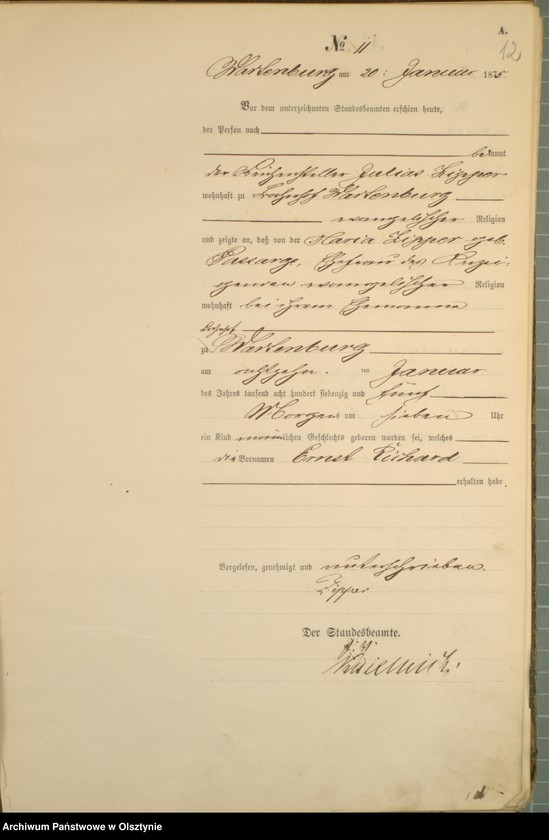 A.
12
№ 11
Wartenburg am 20. Januar 1875
Vor dem unterzeichneten Standesbeamten erschien heute,
der Person nach
bekannt
der Weichensteller Julius Zipper
wohnhaft zu Bahnhof Wartenburg
evangelischer Religion
und zeigte an, daß von der Maria Zipper geb.
Passarge, Ehefrau des Anzei-
genden evangelischer Religion
wohnhaft bei ihrem Ehemanne
Bahnhof
zu Wartenburg
am achtzehn. ten Januar
des Jahres tausend acht hundert siebenzig und fünf
Morgens um sieben Uhr
ein Kind männlichen Geschlechts geboren worden sei, welches
die Vornamen Ernst Richard
erhalten habe.
Vorgelesen, genehmigt und unterschrieben.
Zipper
Der Standesbeamte.
Archiwum Państwowe w Olsztynie